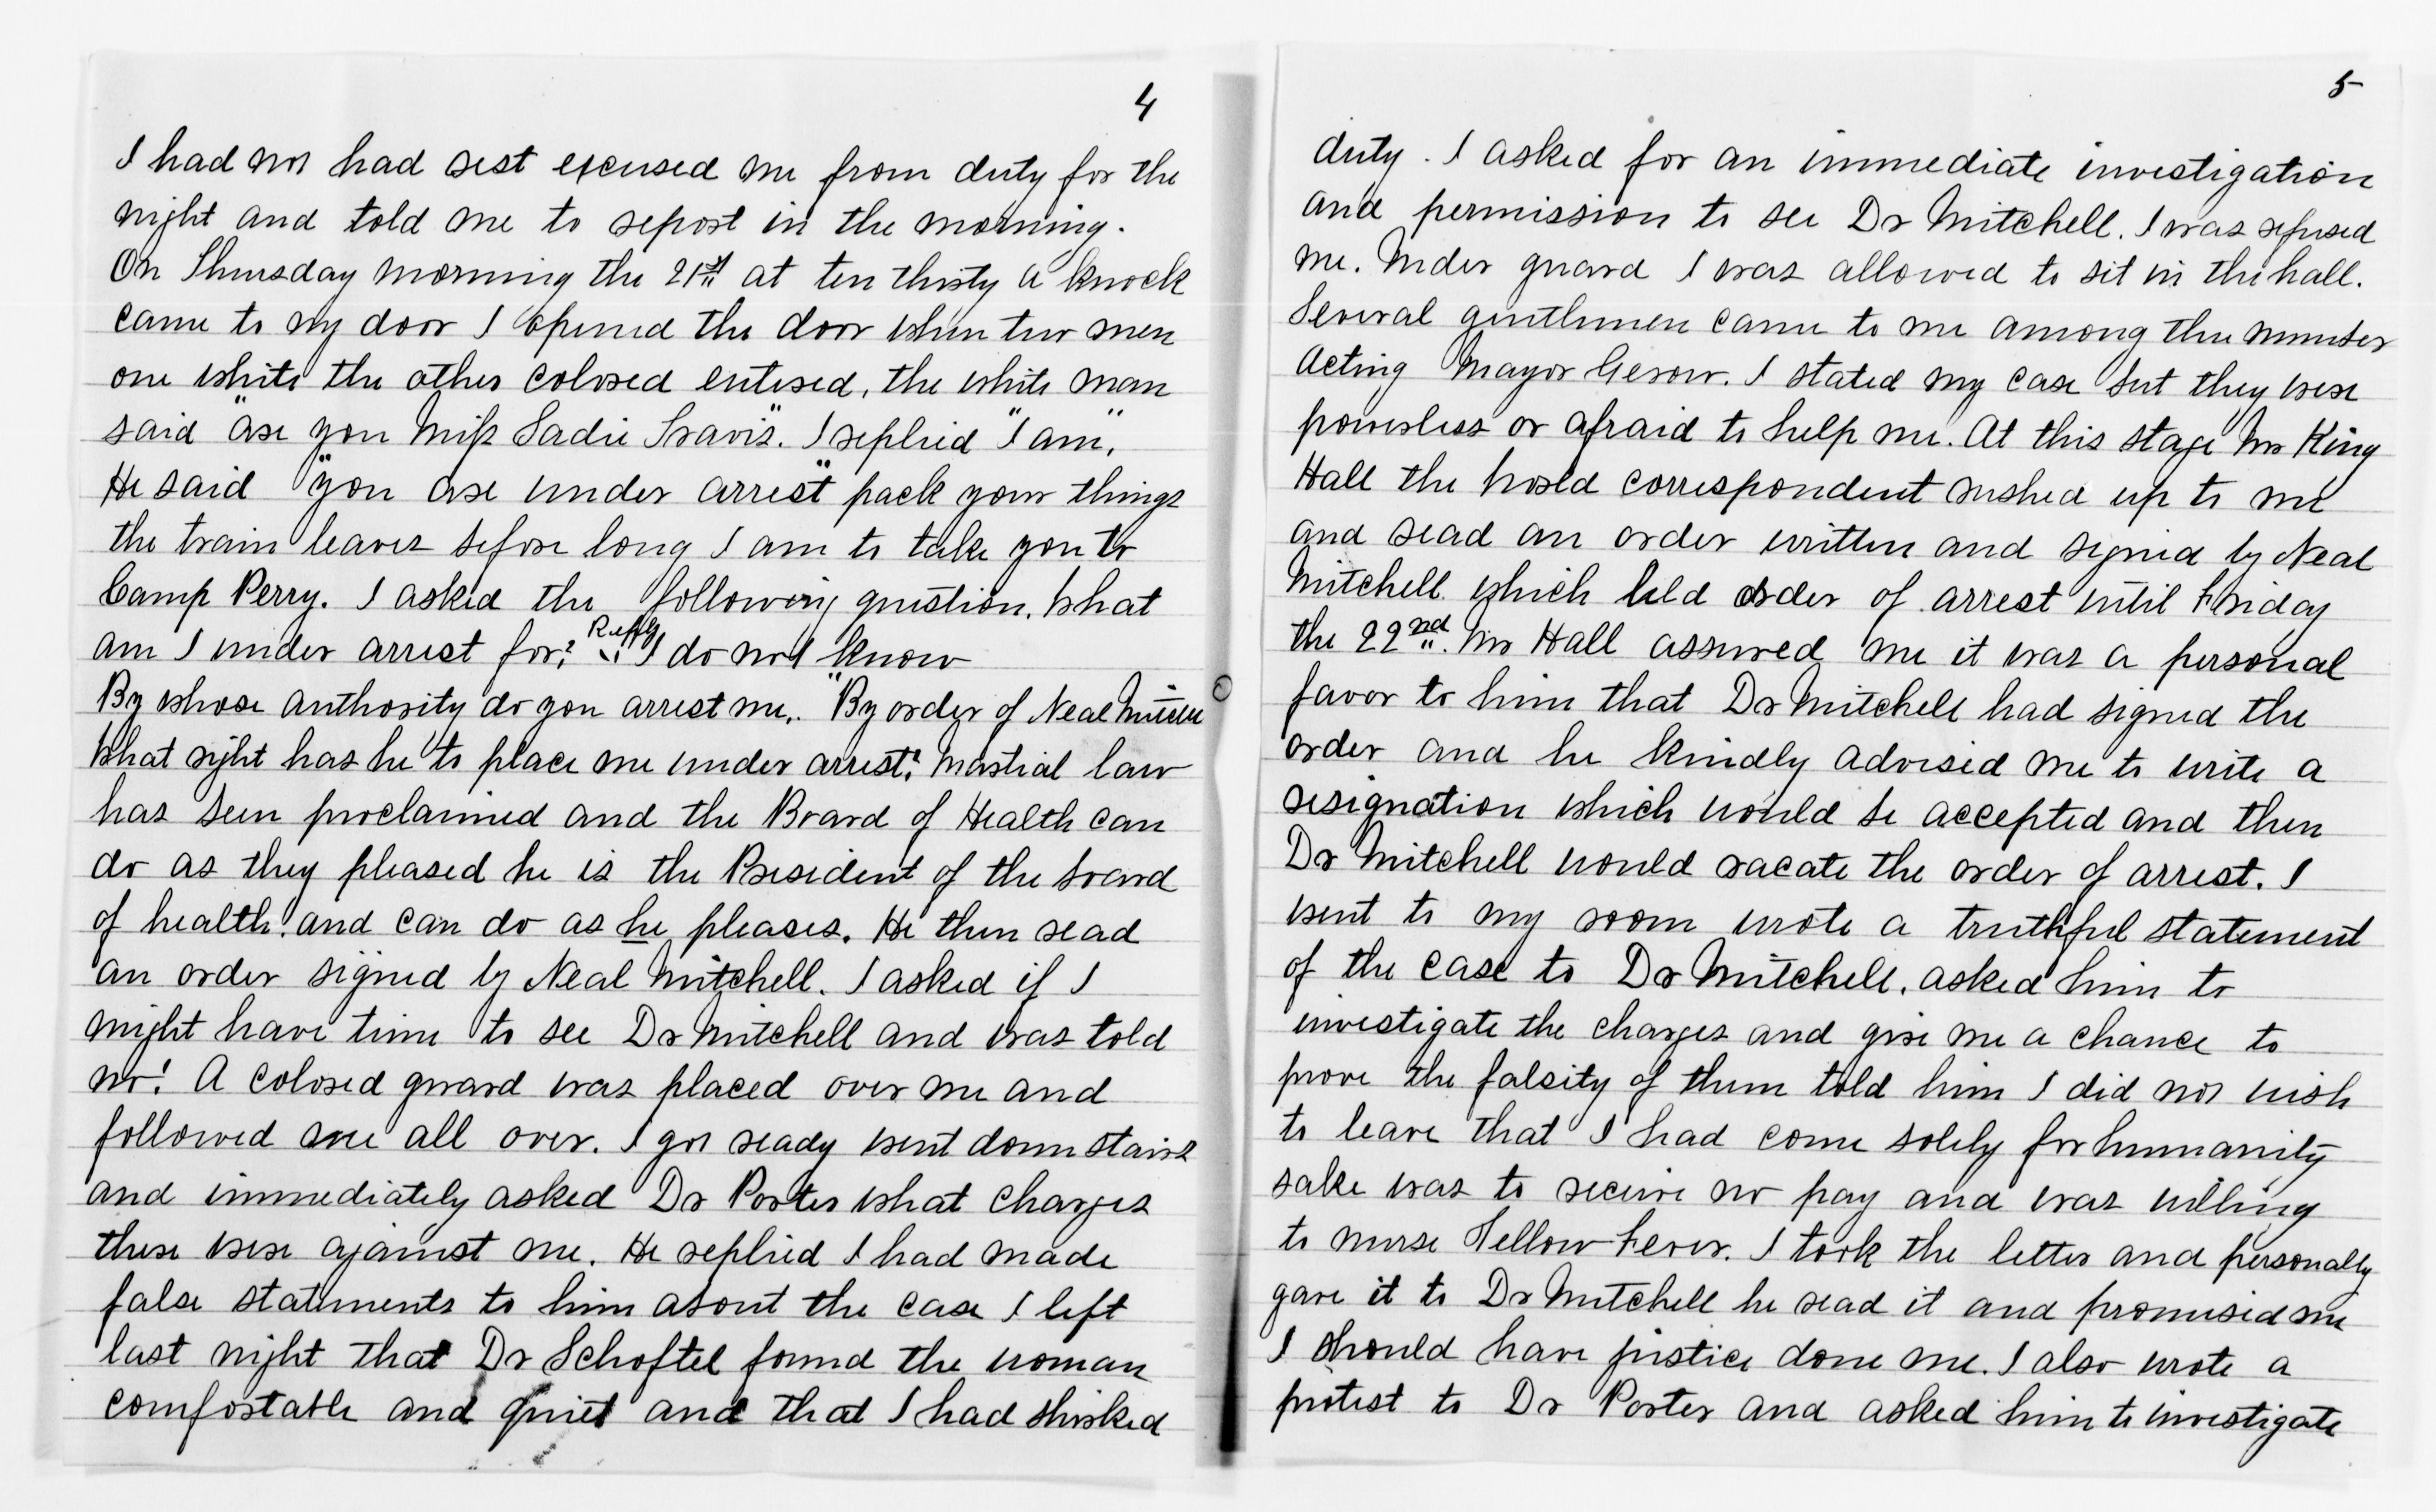 4
I had not had rest excused me from duty for the
night and told me to report in the morning.
On Thursday morning the 21st at ten thirty a knock
came to my door I opened the door when two men
one white the other colored entered, the white man
said "are you Miss Sadie Travis". I replied "I am".
He said "you are under arrest" pack your things
the train leaves before long I am to take you to
Camp Perry. I asked the following question. What
am I under arrest for? Reply "I do not know
By whose authority do you arrest me. "By order of Neal Mitchell
What right has he to place me under arrest? Martial law
has been proclaimed and the Board of Health can
do as they pleased he is the President of the board
of health. and can do as he pleases. He then read
an order signed by Neal Mitchell. I asked if I
might have time to see Dr Mitchell and was told
no! A colored guard was placed over me and
followed me all over. I got ready went down stairs
and immediately asked Dr Porter what charges
there were against me. He replied I had made
false statements to him about the case I left
last night that Dr Schoftel found the woman
comfortable and quiet and that I had shirked
5
duty. I asked for an immediate investigation
and permission to see Dr Mitchell. I was refused
me. Under guard I was allowed to sit in the hall.
Several gentlemen came to me among the number
Acting Mayor Gerow. I stated my case but they were
powerless or afraid to help me. At this stage Mr King
Hall the World correspondent rushed up to me
and read an order written and signed by Neal
Mitchell which held order of arrest until Friday
the 22nd. Mr Hall assured me it was a personal
favor to him that Dr Mitchell had signed the
order and he kindly advised me to write a
resignation which would be accepted and then
Dr Mitchell would vacate the order of arrest. I
went to my room wrote a truthful statement
of the case to Dr Mitchell, asked him to
investigate the charges and give me a chance to
prove the falsity of them told him I did not wish
to leave that I had come solely for humanity
sake was to receive no pay and was willing
to nurse Yellow Fever. I took the letter and personally
gave it to Dr Mitchell he read it and promised me
I should have justice done me. I also wrote a
protest to Dr Porter and asked him to investigate